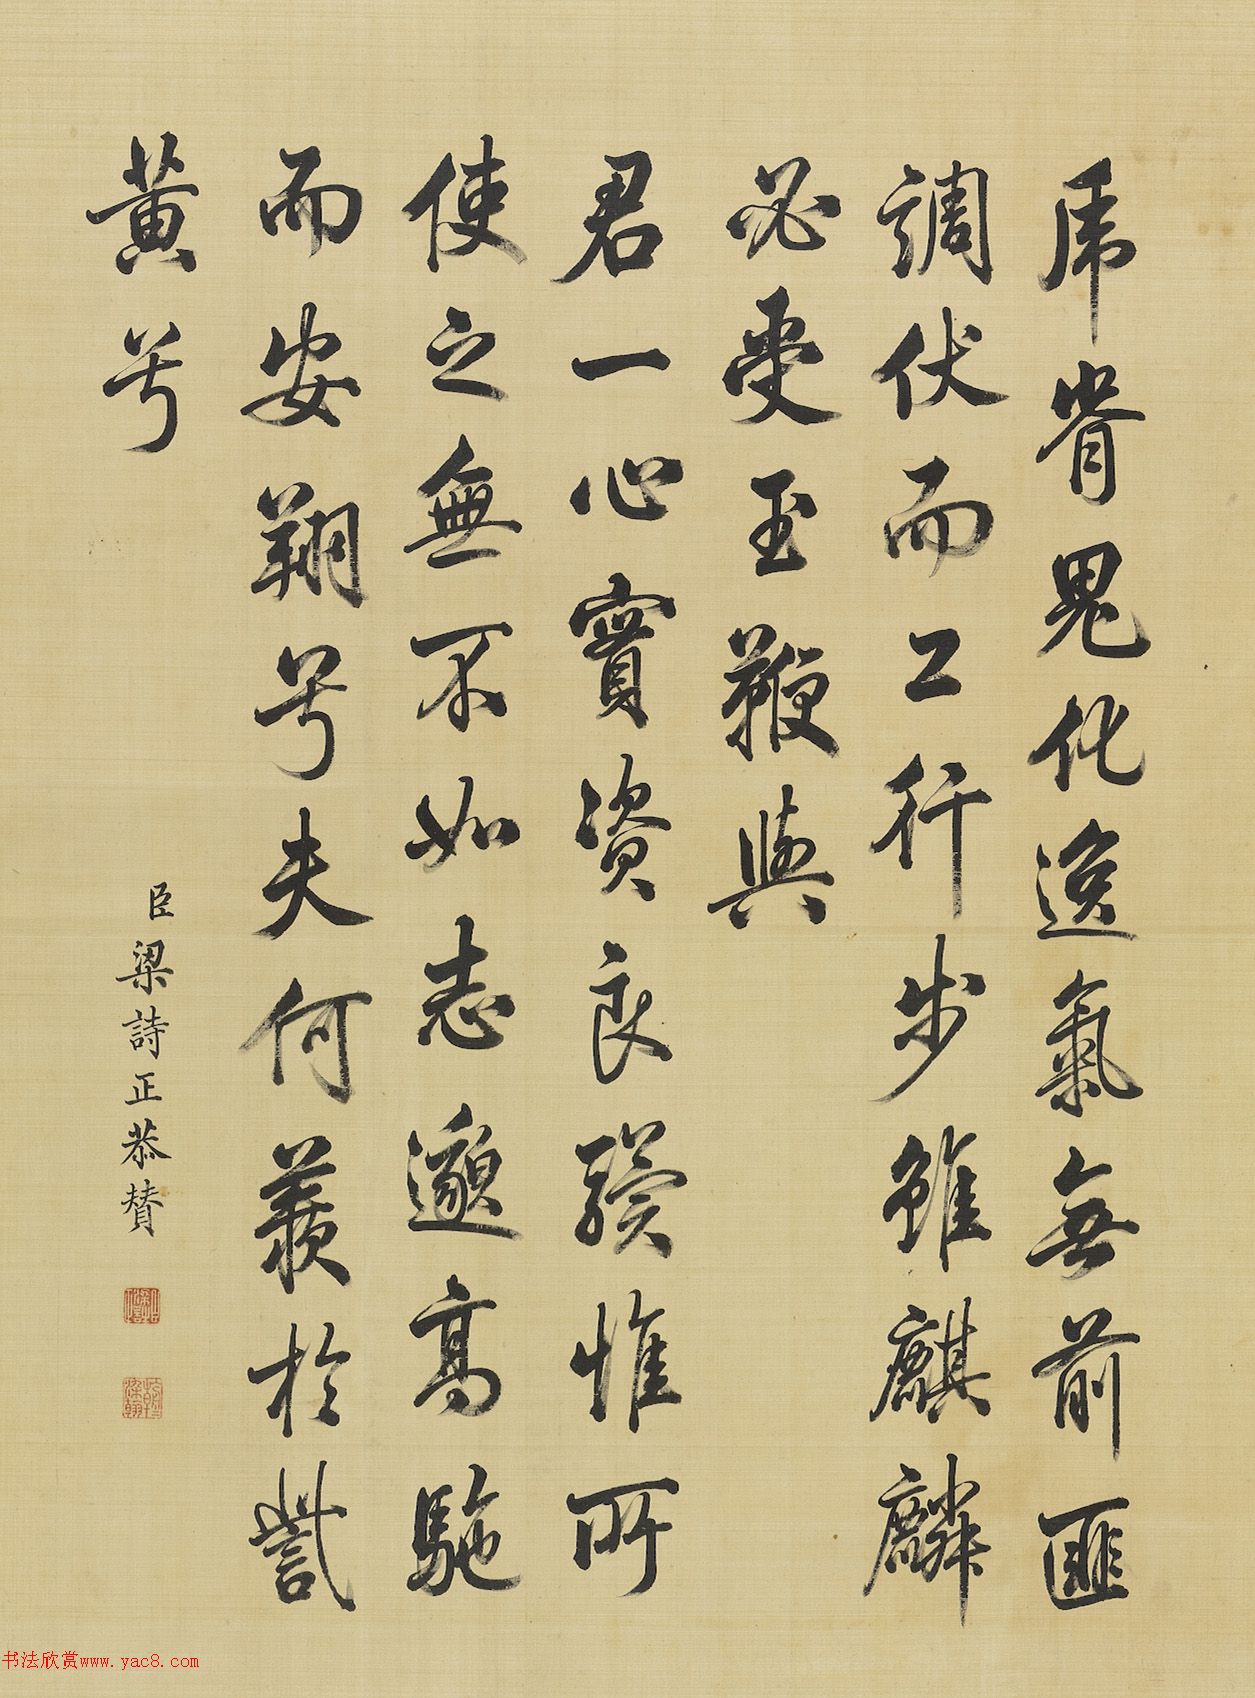 虎脊鬼化逸氣無前匪
調伏而工行步雖麒麟
必受玉鞭與
君一心實資良驥惟所
使之無不如志邈高馳
而安翔兮夫何羨於訾
黃兮
臣梁詩正恭贊
书法欣赏www.yac8.com